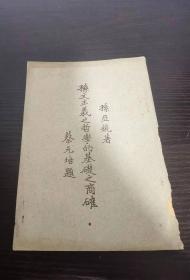 孫亞毓著
孫文主義之哲學的基礎之商確
蔡元培題